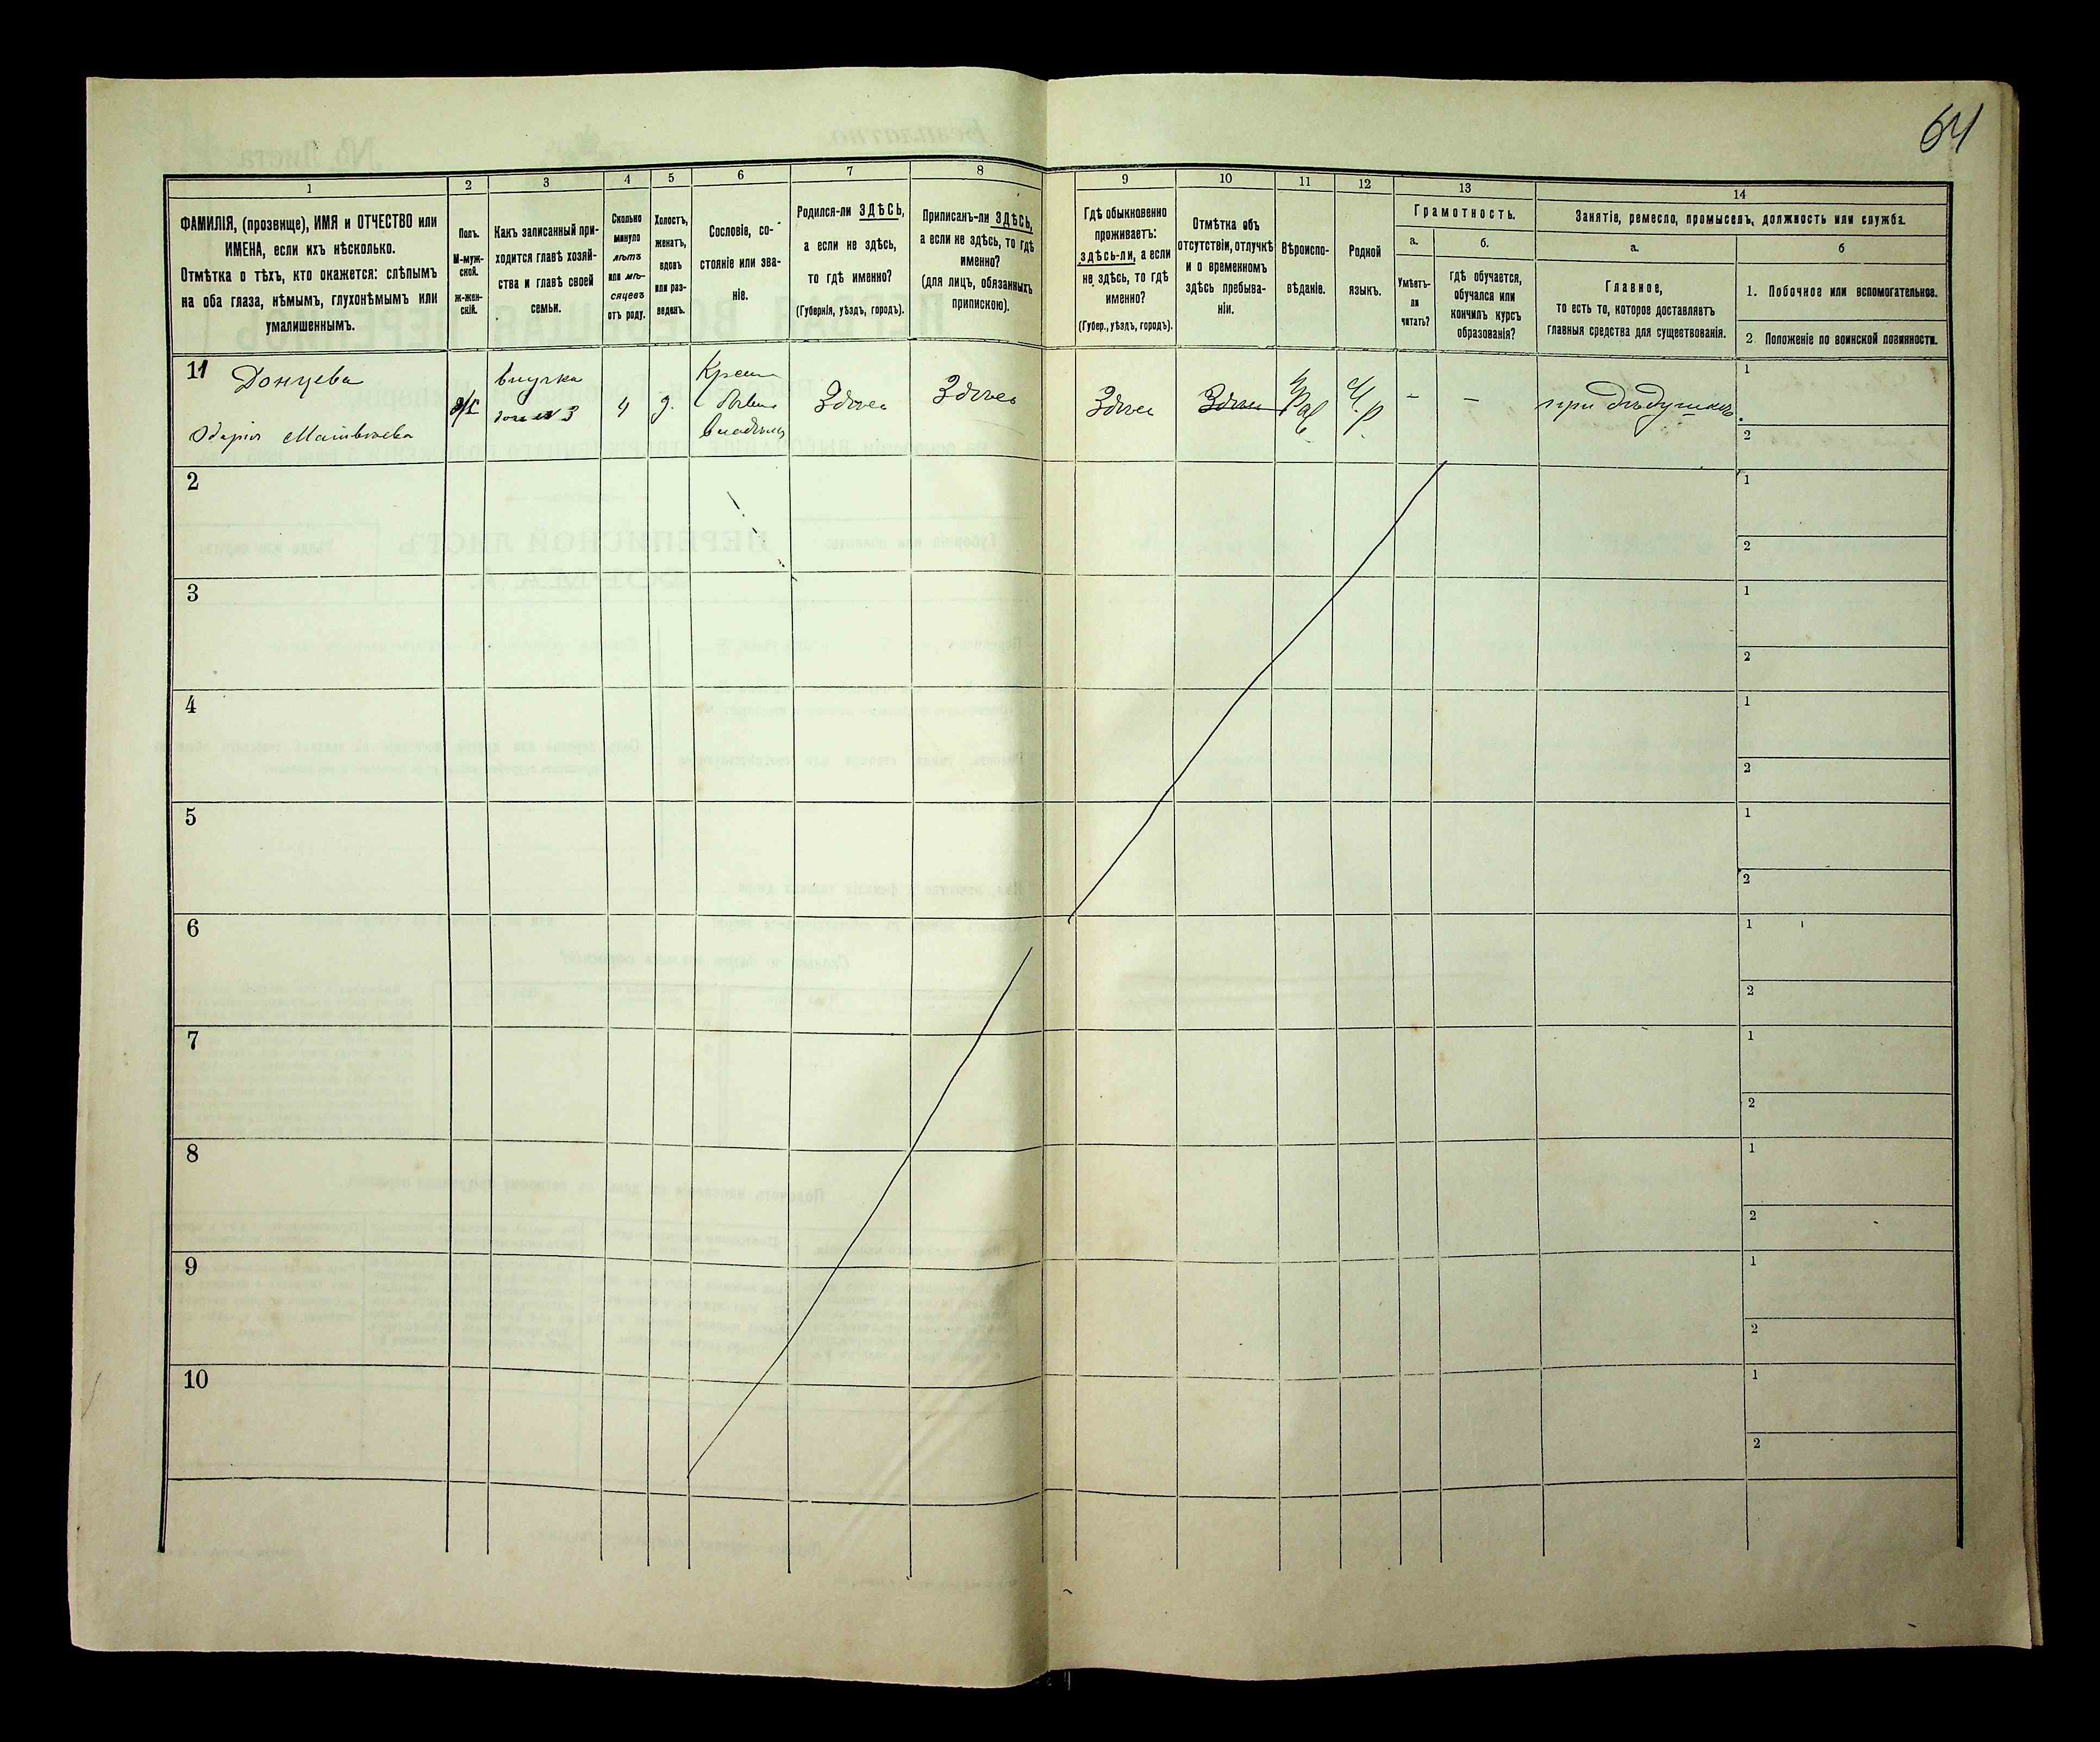 64
1
2
3
4
5
6
7
8
9
10
11
12
13
14
ФАМИЛІЯ, (прозвище), ИМЯ и ОТЧЕСТВО или
ИМЕНА, если ихъ нѣсколько.
Отмѣтка о тѣхъ, кто окажется: слѣпымъ
на оба глаза, нѣмымъ, глухонѣмымъ или
умалишеннымъ.
Полъ.
М-муж-
ской.
Ж-жен-
скій.
Какъ записанный при-
ходится главѣ хозяй-
ства и главѣ своей
семьи.
Сколько
минуло
лѣтъ
или мѣ-
сяцевъ
отъ роду.
Холостъ,
женатъ,
вдовъ
или раз-
веденъ.
Сословіе, со-
стояніе или зва-
ніе.
Родился-ли ЗДѢСЬ,
а если не здѣсь,
то гдѣ именно?
(Губернія, уѣздъ, городъ).
Приписанъ-ли ЗДѢСЬ,
а если не здѣсь, то гдѣ
именно?
(для лицъ, обязанныхъ
припискою).
Гдѣ обыкновенно
проживаетъ:
здѣсь-ли, а если
не здѣсь, то гдѣ
именно?
(Губер., уѣздъ, городъ).
Отмѣтка объ
отсутствіи, отлучкѣ
и о временномъ
здѣсь пребыва-
ніи.
Вѣроиспо-
вѣданіе.
Родной
языкъ.
Грамотность.
а.
Умѣетъ-
ли
читать?
б.
гдѣ обучается,
обучался или
кончилъ курсъ
образованія?
Занятіе, ремесло, промыселъ, должность или служба.
а.
Главное,
то есть то, которое доставляетъ
главныя средства для существованія.
б
1. Побочное или вспомогательное.
2 Положеніе по воинской повинности.
11 Донцева
Одарія Матвѣева
Ж
внучка
4
д.
Крест
владѣлец
Здѣсь
Здѣсь
Здѣсь
Здѣсь
Прав
М.р.
-
-
при дѣдушкѣ
1
2
2
1
2
3
1
2
4
1
2
5
1
2
6
1
2
7
1
2
8
1
2
9
1
2
10
1
2